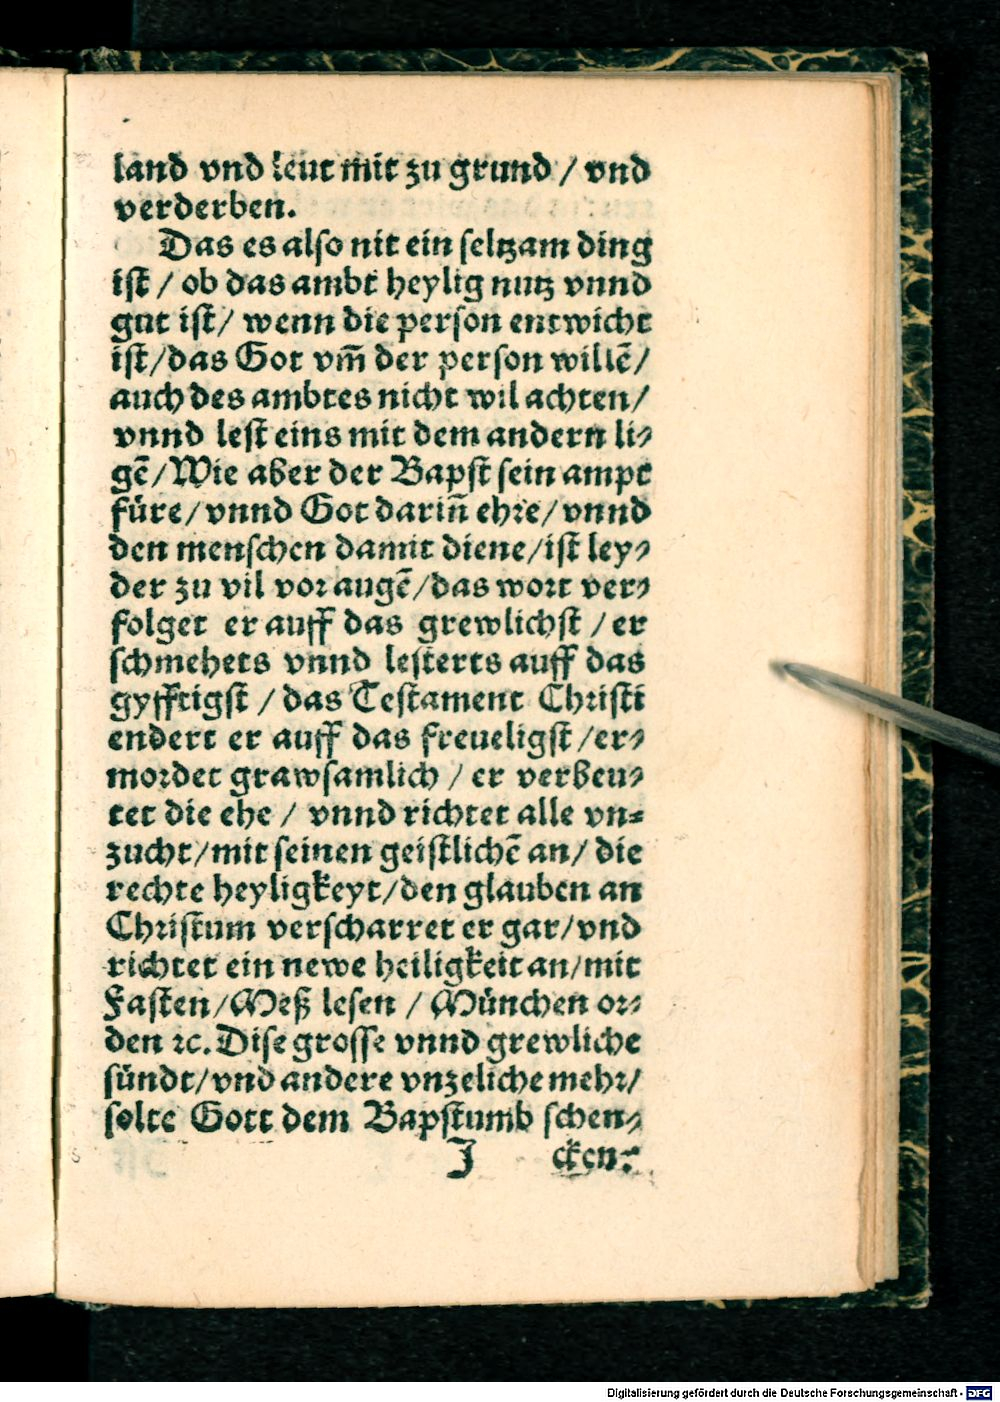 land vnd leut mit zu grund / vnd
verderben.
Das es also nit ein seltzam ding
ist / ob das ambt heylig nutz vnnd
gut ist / wenn die person entwicht
ist / das Got vm̃ der person willẽ /
auch des ambtes nicht wil achten /
vnnd lest eins mit dem andern li⸗
gẽ / Wie aber der Bapst sein ampt
füre / vnnd Got dariñ ehre / vnnd
den menschen damit diene / ist ley⸗
der zu vil vor augẽ / das wort ver⸗
folget er auff das grewlichst / er
schmehets vnnd lesterts auff das
gyfftigst / das Testament Christi
endert er auff das freueligst / er⸗
mordet grawsamlich / er verbeu⸗
tet die ehe / vnnd richtet alle vn⸗
zucht / mit seinen geistlichẽ an / die
rechte heyligkeyt / den glauben an
Christum verscharret er gar / vnd
richtet ein newe heiligkeit an / mit
Fasten / Meß lesen / München or⸗
den ꝛc. Dise grosse vnnd grewliche
sündt / vnd andere vnzeliche mehr /
solte Gott dem Bapstumb schen⸗
J cken:
Digitalisierung gefördert durch die Deutsche Forschungsgemeinschaft - DFG